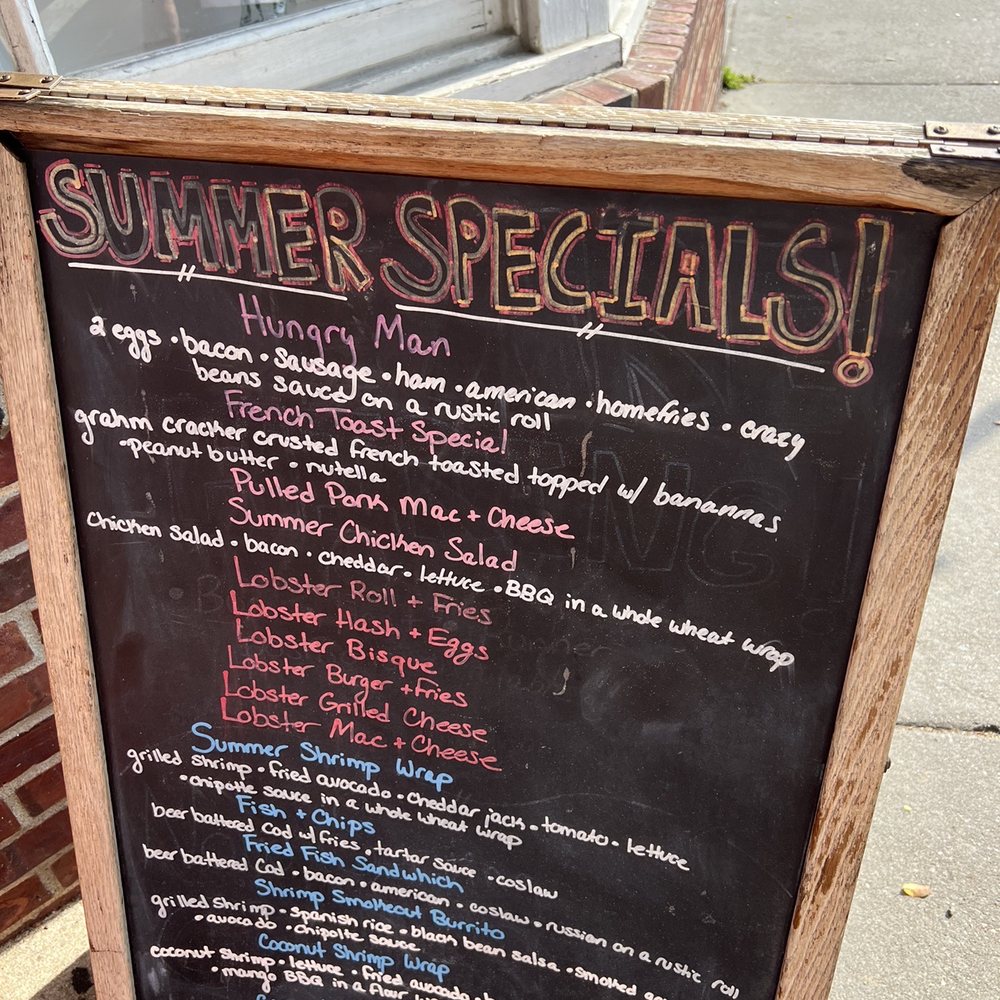 SUMMER SPECIALS!
Hungry Man
2 eggs • bacon • sausage • ham • american • homefries • crazy
beans sauce on a rustic roll
French Toast Special
grahm cracker crusted french toasted topped w/ banannas
• peanut butter • nutella
Pulled Pork Mac + Cheese
Summer Chicken Salad
chicken salad • bacon • cheddar • lettuce • BBQ in a whole wheat wrap
Lobster Roll + Fries
Lobster Hash + Eggs
Lobster Bisque
Lobster Burger + Fries
Lobster Grilled Cheese
Lobster Mac + Cheese
Summer Shrimp Wrap
grilled shrimp • fried avocado • cheddar jack • tomato • lettuce
• chipotle sauce in a whole wheat wrap
Fish + Chips
beer battered cod w/ fries • tartar sauce • coslaw
Fried Fish Sandwhich
beer battered Cod • bacon • american • coslaw • russian on a rustic roll
Shrimp Smokeout Burrito
grilled shrimp • spanish rice • black bean salsa • smoked
• avocado • chipolte sauce
Coconut Shrimp Wrap
coconut shrimp • lettuce • fried avocado
• mango BBQ in a flour